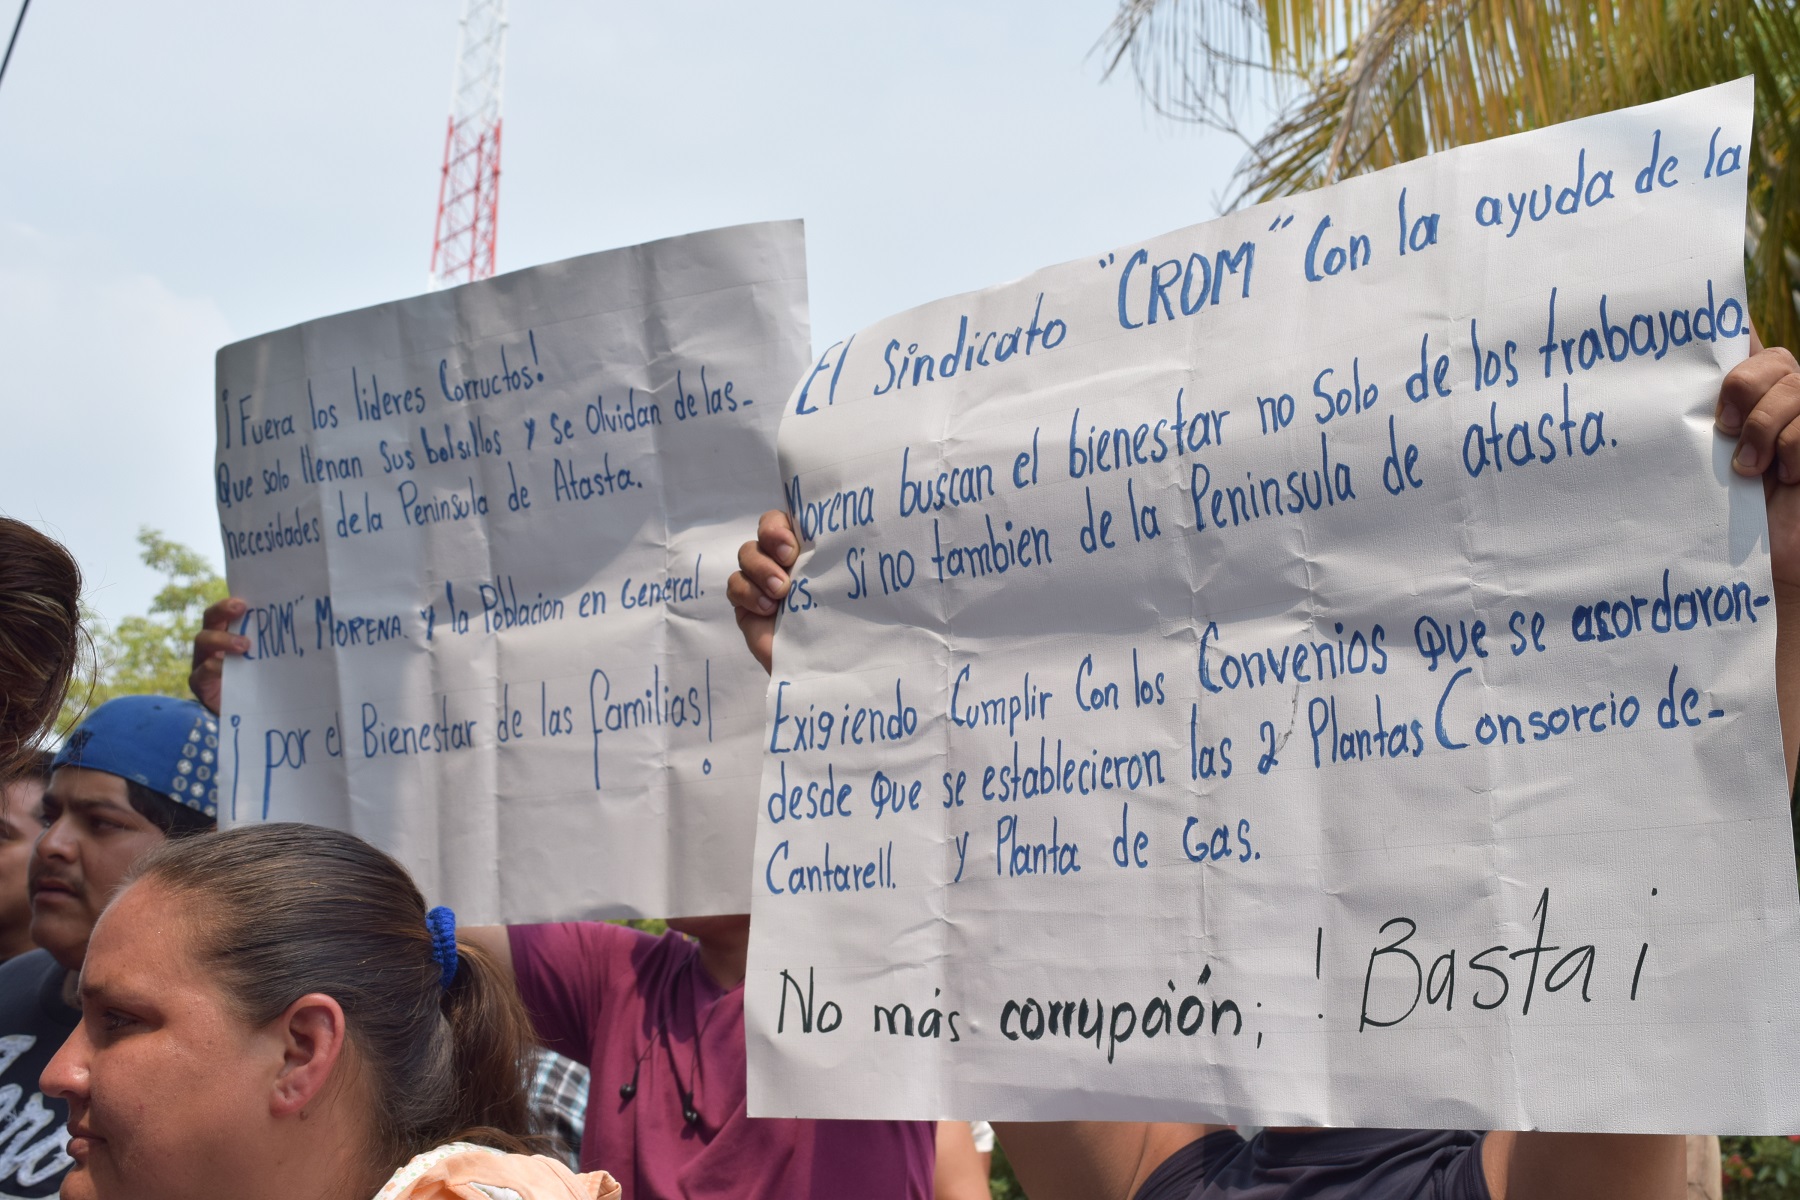 ¡Fuera los lideres Corructos!
Que solo llenan sus bolsillos y se olvidan de las-
necesidades de la Peninsula de Atasta.
"CROM", MORENA. y la Poblacion en General.
¡por el Bienestar de las familias!
El Sindicato "CROM" Con la ayuda de la
Morena buscan el bienestar no Solo de los trabajado.
res. Si no tambien de la Peninsula de atasta.
Exigiendo Cumplir Con los Convenios Que se asordaron-
desde Que se establecieron las 2 Plantas Consorcio de-
Cantarell. y Planta de Gas.
No más corrupción; ! Basta ¡